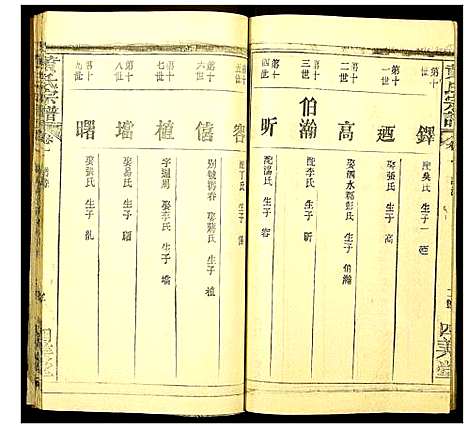 第十世
鐸
配吳氏 生子一 迺
第十一世
迺
娶張氏 生子 高
第十二世
高
娶泗水縣彭氏 生子 伯瀚
第十三世
伯瀚
配李氏 生子 昕
第十四世
昕
配湯氏 生子 容
第十五世
容
配丁氏 生子 僖
第十六世
僖
娶蔣氏 生子 植
第十七世
植
娶李氏 生子 壋
第十八世
壋
娶葛氏 生子 曙
第十九世
曙
娶張氏 生子
黃氏宗譜
卷一
四美堂